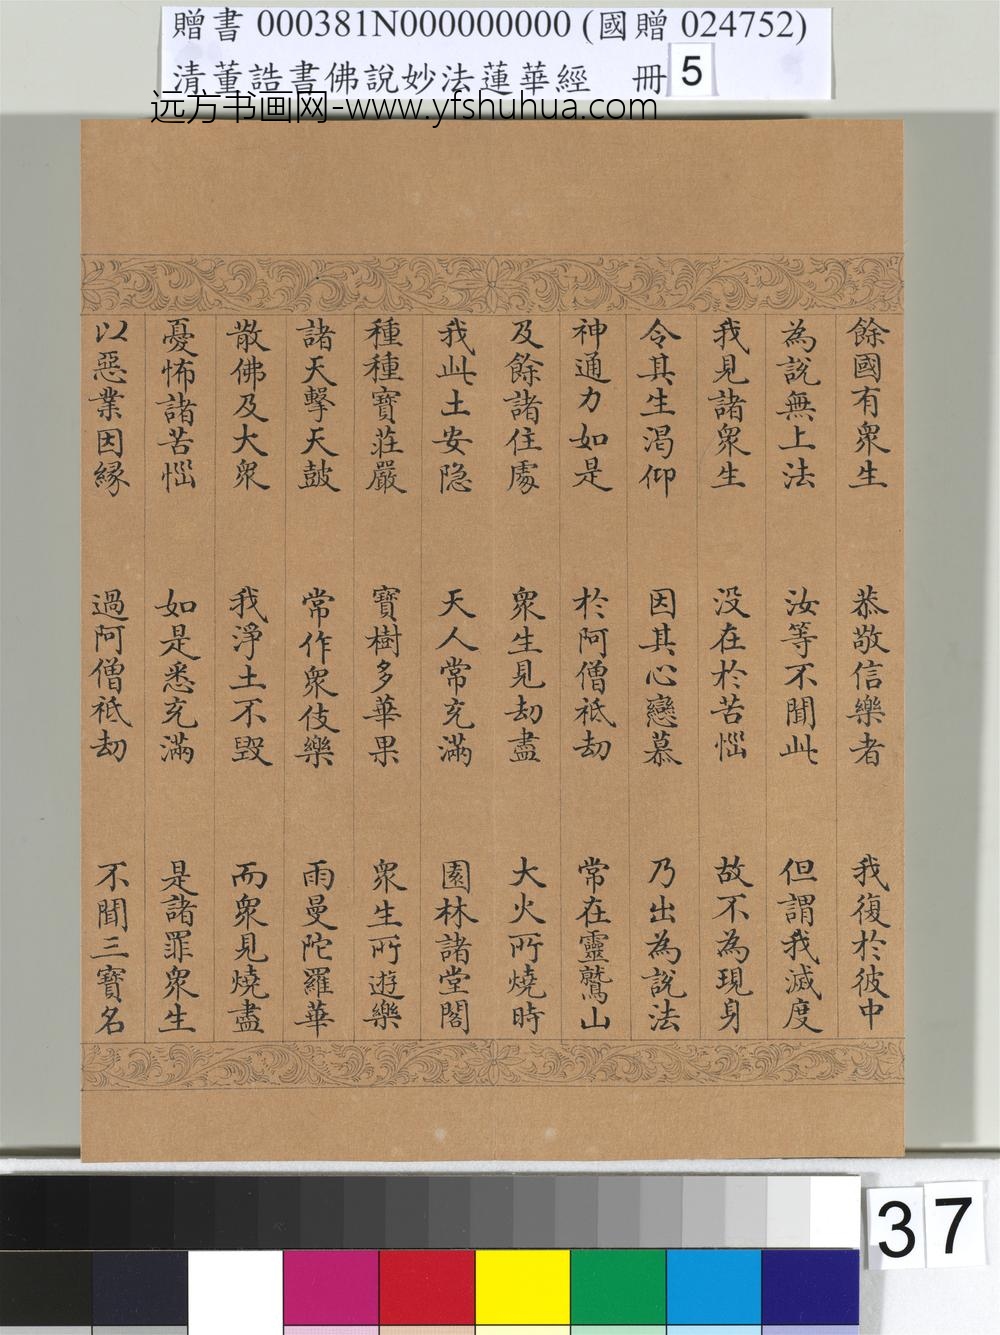 贈書 000381N000000000 (國贈 024752)
清董誥書佛說妙法蓮華經 冊 5
远方书画网-www.yfshuhua.com
餘國有衆生 恭敬信樂者 我復於彼中
為說無上法 汝等不聞此 但謂我滅度
我見諸衆生 没在於苦惱 故不為現身
令其生渴仰 因其心戀慕 乃出為說法
神通力如是 於阿僧祇劫 常在靈鷲山
及餘諸住處 衆生見劫盡 大火所燒時
我此土安隐 天人常充滿 園林諸堂閣
種種寶莊嚴 寶樹多華果 衆生所遊樂
諸天擊天鼓 常作衆伎樂 雨曼陀羅華
散佛及大衆 我淨土不毀 而衆見燒盡
憂怖諸苦惱 如是悉充滿 是諸罪衆生
以惡業因緣 過阿僧祇劫 不聞三寶名
37